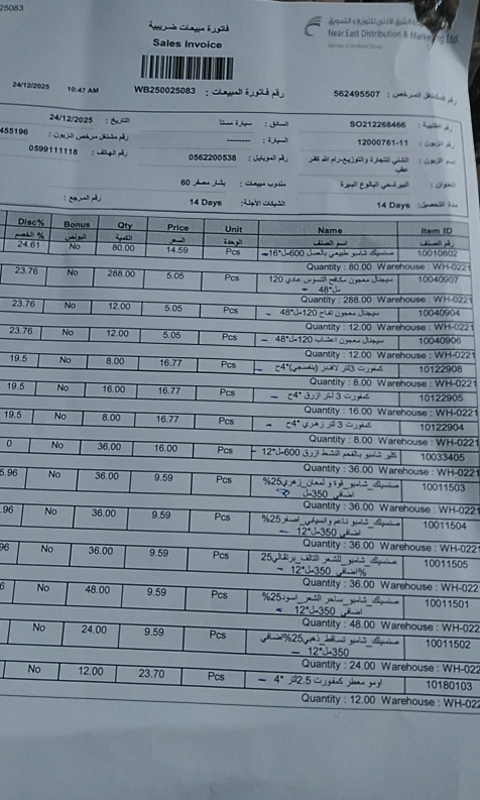 25083
شركة الشرق الأدنى للتوزيع والتسويق
Near East Distribution & Marketing Ltd.
فاتورة مبيعات ضريبية
Sales Invoice
رقم مشتغل المرخص : 562495507
رقم فاتورة المبيعات : WB250025083
10:47 AM
24/12/2025
رقم الطلبية : SO212268466
السائق : سيارة مستا
التاريخ : 24/12/2025
رقم الزبون : 12000761-11
السيارة : --------
رقم مشتغل مرخص الزبون : 455196
اسم الزبون : الشني للتجارة والتوزيع-رام الله كفر عقب
رقم الموبايل : 0562200538
رقم الهاتف : 0599111118
العنوان : البيرة-حي البالوع البيرة
مندوب مبيعات : بشار مصفر 60
مدة التحصيل : 14 Days
الشيكات الآجلة : 14 Days
رقم المرجع :
Disc% Bonus Qty Price Unit Name Item ID
% الخصم البونص الكمية السعر الوحدة اسم الصنف رقم الصنف
24.61 No 80.00 14.59 Pcs صنسيلك شامبو طبيعي بالعسل 600مل*16 10010602
Quantity : 80.00 Warehouse : WH-0221
23.76 No 288.00 5.05 Pcs سيجنال معجون مكافح التسوس عادي 120 مل*48 10040907
Quantity : 288.00 Warehouse : WH-0221
23.76 No 12.00 5.05 Pcs سيجنال معجون نفاح 120مل*48 10040904
Quantity : 12.00 Warehouse : WH-0221
23.76 No 12.00 5.05 Pcs سيجنال معجون اعشاب 120مل*48 10040906
Quantity : 12.00 Warehouse : WH-0221
19.5 No 8.00 16.77 Pcs كمفورت 3لتر لافندر (بنفسجي)*4ح 10122908
Quantity : 8.00 Warehouse : WH-0221
19.5 No 16.00 16.77 Pcs كمفورت 3 لتر ازرق *4ح 10122905
Quantity : 16.00 Warehouse : WH-0221
19.5 No 8.00 16.77 Pcs كمفورت 3 لتر زهري *4ح 10122904
Quantity : 8.00 Warehouse : WH-0221
0 No 36.00 16.00 Pcs كلير شامبو بالفحم النشط ازرق 600مل*12 10033405
Quantity : 36.00 Warehouse : WH-0221
5.96 No 36.00 9.59 Pcs صنسيلك_شامبو_قوة و لمعان_زهري25% اضافي_350مل 10011503
Quantity : 36.00 Warehouse : WH-0221
.96 No 36.00 9.59 Pcs صنسيلك_شامبو ناعم وانسيابي_اصفر25% اضافي_350مل*12 10011504
Quantity : 36.00 Warehouse : WH-0221
96 No 36.00 9.59 Pcs صنسيلك_شامبو_للشعر التالف_برتقالي25 %اضافي_350مل*12 10011505
Quantity : 36.00 Warehouse : WH-022
6 No 48.00 9.59 Pcs صنسيلك_شامبو_ساحر الشعر_اسود25% اضافي_350مل*12 10011501
Quantity : 48.00 Warehouse : WH-022
No 24.00 9.59 Pcs صنسيلك_شامبو تساقط_ذهبي25%اضافي _350مل*12 10011502
Quantity : 24.00 Warehouse : WH-022
No 12.00 23.70 Pcs اومو معطر كمفورت 2.5لتر *4 10180103
Quantity : 12.00 Warehouse : WH-022